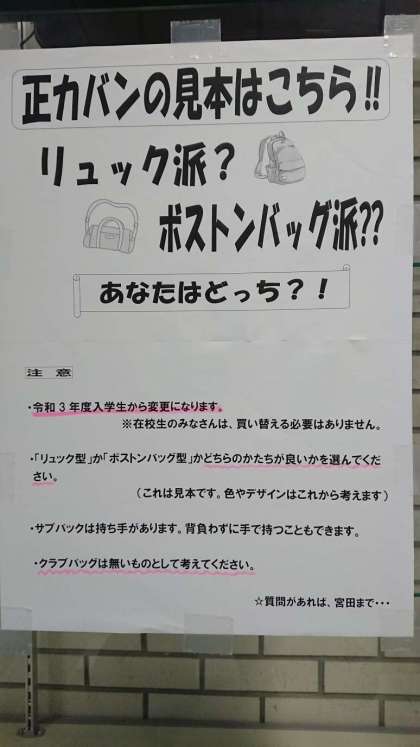 正カバンの見本はこちら!!
リュック派？
ボストンバッグ派??
あなたはどっち？！
注　意
・令和３年度入学生から変更になります。
※在校生のみなさんは、買い替える必要はありません。
・「リュック型」か「ボストンバッグ型」かどちらのかたちが良いかを選んでくだ
さい。
（これは見本です。色やデザインはこれから考えます）
・サブバックは持ち手があります。背負わずに手で持つこともできます。
・クラブバッグは無いものとして考えてください。
☆質問があれば、宮田まで・・・